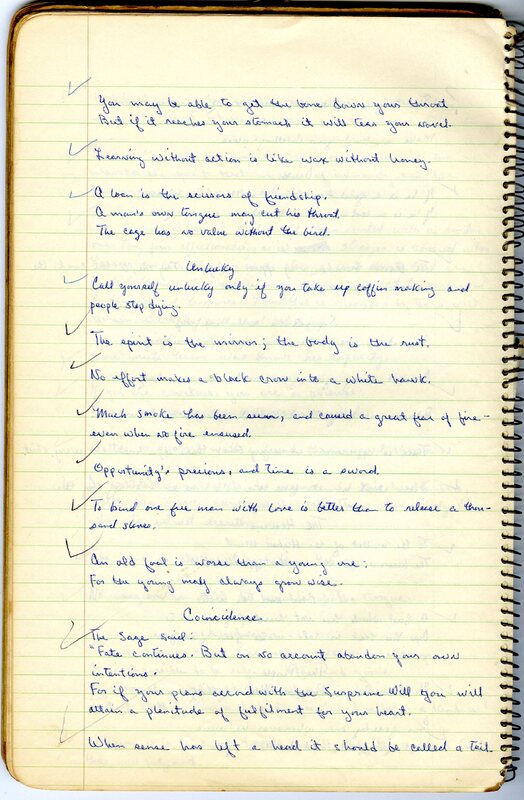 You may be able to get the bone down your throat
But if it reaches your stomach it will tear your navel.
Learning without action is like wax without honey.
A loan is the scissors of friendship.
A man's own tongue may cut his throat.
The cage has no value without the bird.
Unlucky
Call yourself unlucky only if you take up coffin making and
people stop dying.
The spirit is the mirror; the body is the rust.
No effort makes a black crow into a white hawk.
Much smoke has been seen, and caused a great fear of fire -
even when no fire ensued.
Opportunity's precious, and time is a sword.
To bind one free man with love is better than to release a thou-
sand slaves.
An old fool is worse than a young one:
For the young may always grow wise.
Coincidence
The Sage said:
"Fate continues. But on no account abandon your own
intentions.
For if your plans accord with the Supreme Will you will
attain a plenitude of fulfilment for your heart.
When sense has left a head it should be called a tail.